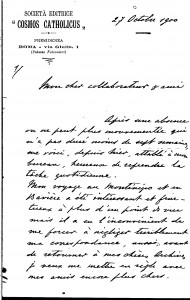 SOCIETÀ EDITRICE
"COSMOS CATHOLICUS"
PRESIDENZA
ROMA - via Giulia, 1
(Palazzo Falconieri)
27 Octobre 1900
Mon cher collaborateur & ami
Après une absence
on ne peut plus mouvementée qui
n'a pas duré moins de sept semaines,
me voici, depuis hier, attablé à mon
bureau, heureux de reprendre la
tâche quotidienne.
Mon voyage au Monténégro et en
Bavière a été intéressant et fruc-
tueux à plus d'un point de vue
mais il a eu l'inconvénient de
me forcer à négliger terriblement
ma correspondance, aussi, avant
de retourner à mes chères Archives,
je veux me mettre en règle avec
mes amis encore plus chers.